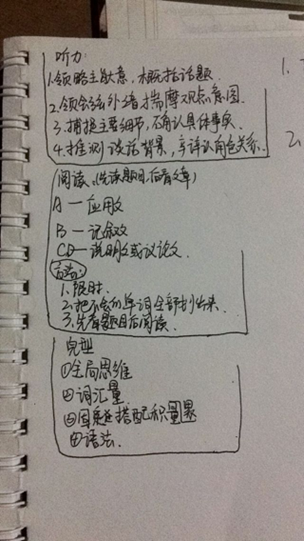 听力:
1.领略主旨大意,概括话题.
2.领会弦外之音,揣摩观点意图
3.捕捉主要细节,确认具体事实
4.推测谈话背景,辨认角色关系.
阅读.(先读题目,后看文章)
A—应用文
B—记叙文
CD—说明文或议论文
1.限时.
2.把不会的单词全部划出来.
3.先看题目后阅读.
完型
①全局思维
②词汇量
搭配积累
④语法.
1.
2.